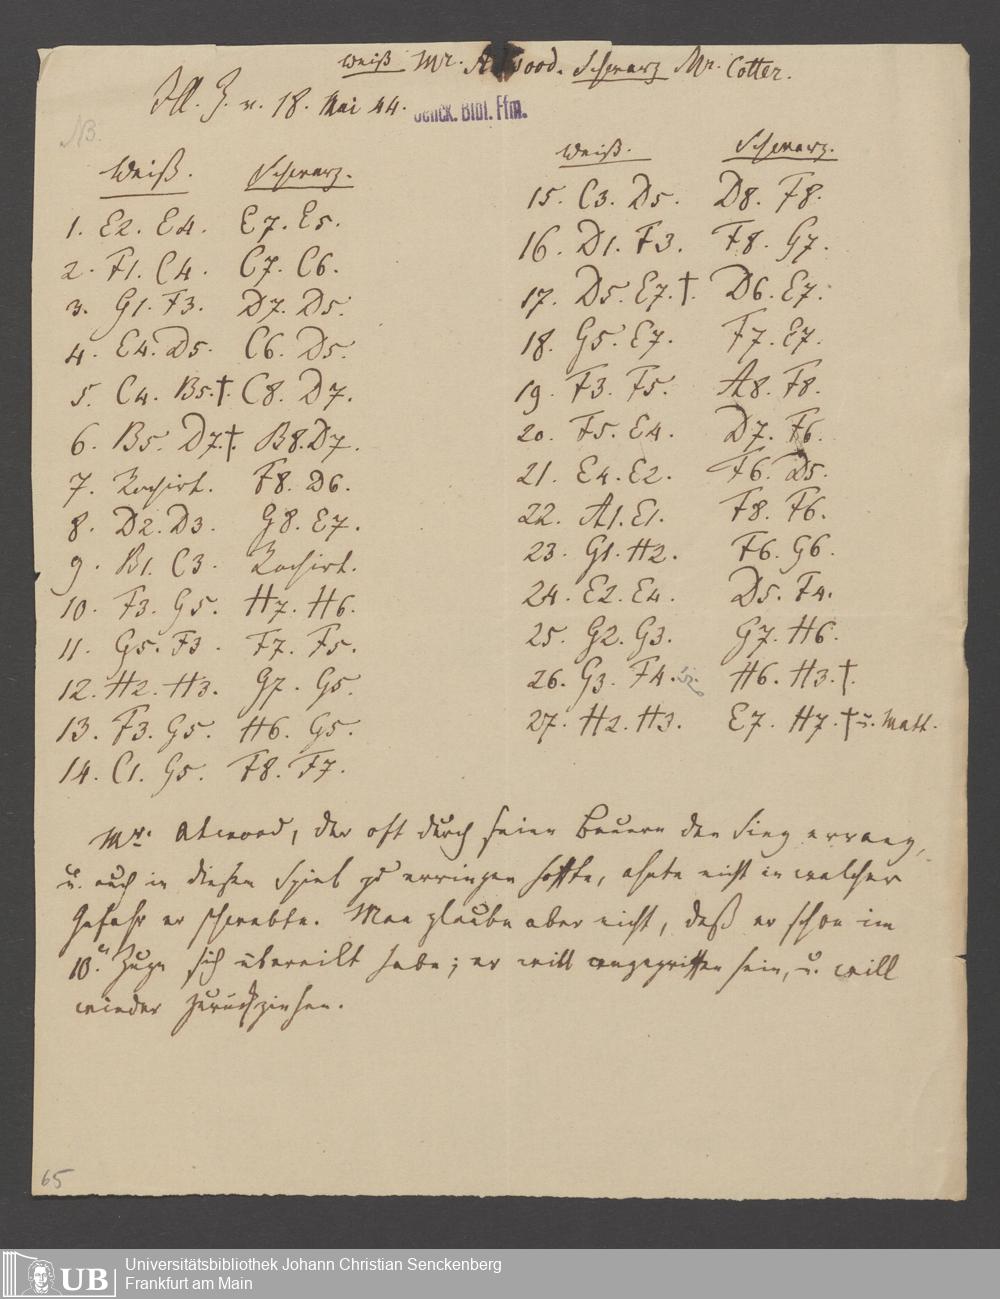 Weiß Mr. Atwood. Schwarz Mr. Cotter.
Ill. Z. v. 18. Mai 44.
Senck. Bibl. Ffm.
NB.
Weiß. Schwarz.
1. E2. E4. E7. E5.
2. F1. C4. C7. C6.
3. G1. F3. D7. D5.
4. E4. D5. C6. D5.
5. C4. B5.†. C8. D7.
6. B5. D7.†. B8. D7.
7. Rochirt. F8. D6.
8. D2. D3. G8. E7.
9. B1. C3. Rochirt.
10. F3. G5. H7. H6.
11. G5. F3. F7. F5.
12. H2. H3. G7. G5.
13. F3. G5. H6. G5.
14. C1. G5. F8. F7.
Weiß. Schwarz.
15. C3. D5. D8. F8.
16. D1. F3. F8. G7.
17. D5. E7.†. D6. E7.
18. G5. E7. F7. E7.
19. F3. F5. A8. F8.
20. F5. E4. D7. F6.
21. E4. E2. F6. D5.
22. A1. E1. F8. F6.
23. G1. H2. F6. G6.
24. E2. E4. D5. F4.
25. G2. G3. G7. H6.
26. G3. F4. H6. H3.†.
27. H2. H3. E7. H7.† u. Matt.
Mr. Atwood, der oft durch seine Bauern den Sieg errang,
u. auch in diesem Spiel zu erringen hoffte, ahnte nicht in welcher
Gefahr er schwebte. Man glaube aber nicht, daß er schon im
10. Zuge sich übereilt habe; er will angegriffen sein, u. will
wieder zurückziehen.
65
UB
Universitätsbibliothek Johann Christian Senckenberg
Frankfurt am Main